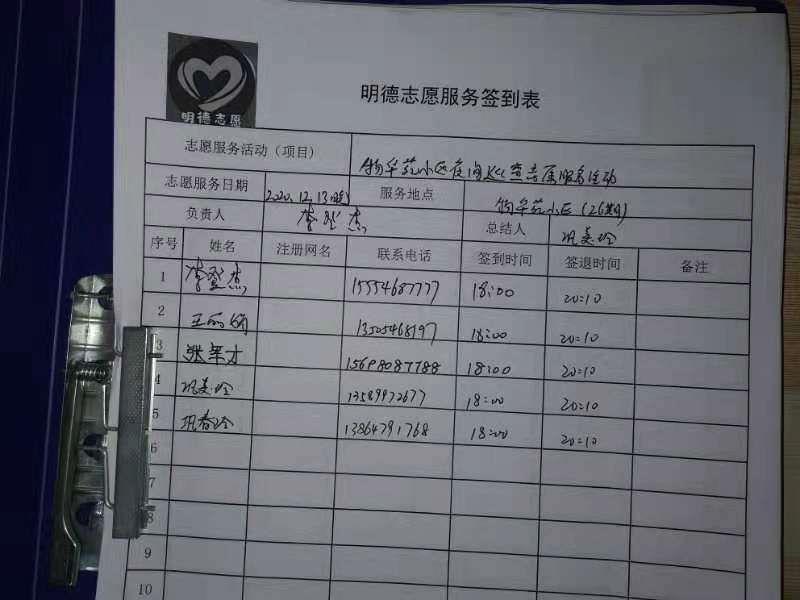 明德志愿
明德志愿服务签到表
志愿服务活动（项目） 物华苑小区夜间 服务活动
志愿服务日期 2020.12.13(晚) 服务地点 物华苑小区(26期)
负责人 李登杰 总结人 巩美玲
序号 姓名 注册网名 联系电话 签到时间 签退时间 备注
1 李登杰 15554687777 18:00 20:10
2 王 13505468197 18:00 20:10
3 张军才 15698087788 18:00 20:10
4 巩美玲 13589972677 18:00 20:10
5 巩春玲 13864791768 18:00 20:10
6
7
8
9
10